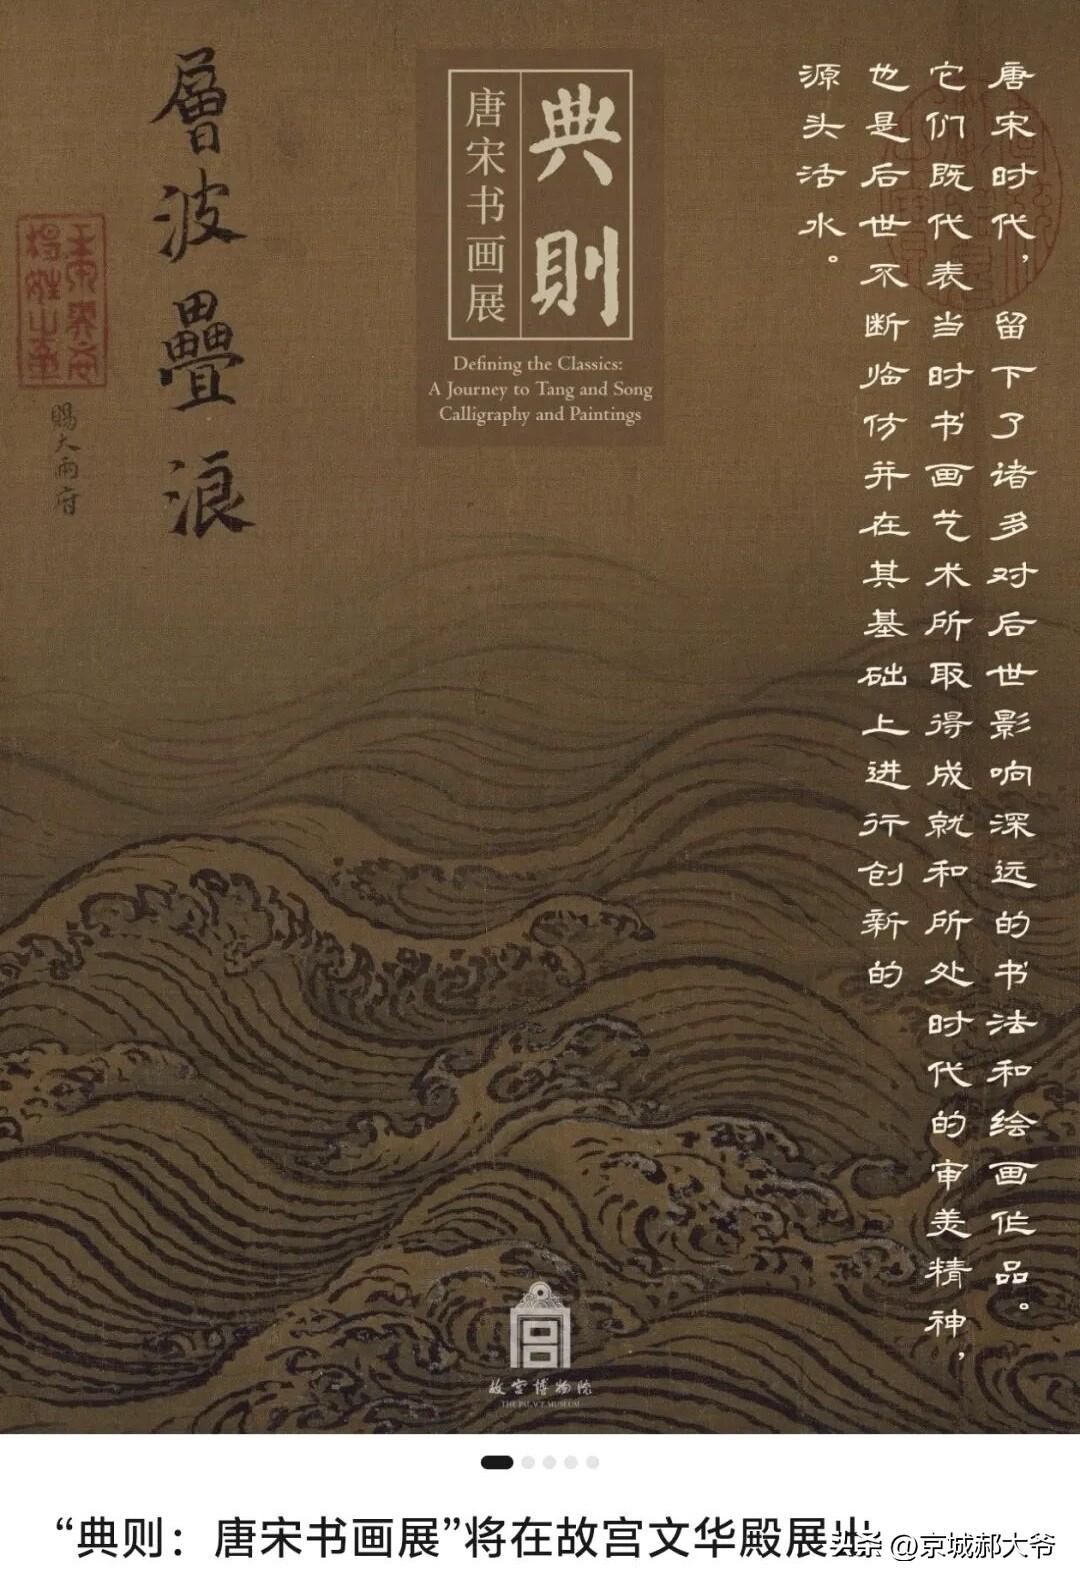 層波疊浪
賜大兩府
典則
唐宋书画展
Defining the Classics:
A Journey to Tang and Song
Calligraphy and Paintings
唐宋时代，留下了诸多对后世影响深远的书法和绘画作品。
它们既代表当时书画艺术所取得成就和所处时代的审美精神，
也是后世不断临仿并在其基础上进行创新的
源头活水。
故宫博物院
THE PALACE MUSEUM
“典则：唐宋书画展”将在故宫文华殿展出
头条 @京城郝大爷